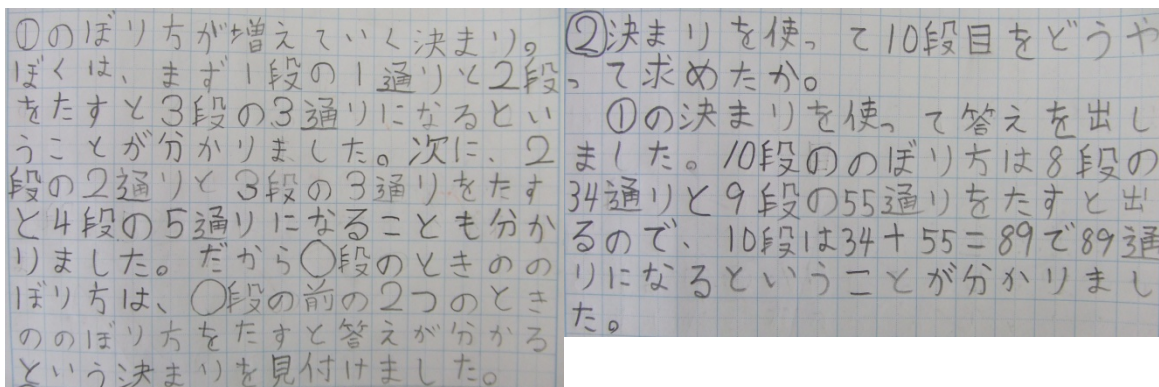 ①のぼり方が増えていく決まり。
ぼくは、まず1段の1通りと2段
をたすと3段の3通りになるとい
うことが分かりました。次に、2
段の2通りと3段の3通りをたす
と4段の5通りになることも分か
りました。だから○段のときのの
ぼり方は、○段の前の2つのとき
ののぼり方をたすと答えが分かる
という決まりを見付けました。
②決まりを使って10段目をどうや
って求めたか。
①の決まりを使って答えを出し
ました。10段ののぼり方は8段の
34通りと9段の55通りをたすと出
るので、10段は34+55=89で89通
りになるということが分かりまし
た。